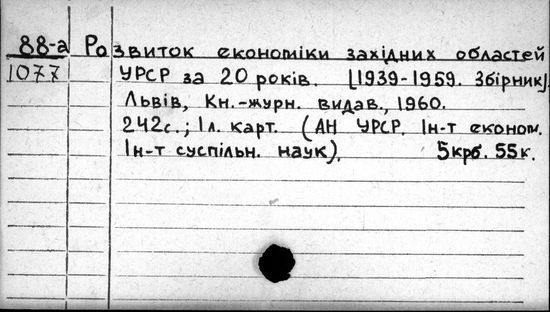 88-а Розвиток економіки західних областей
1077 УРСР за 20 років. [1939-1959. Збірник].
Львів, Кн.-журн. видав., 1960.
242с.; 1л. карт. (АН УРСР. Ін-т економ.
Ін-т суспільн. наук). 5крб. 55к.